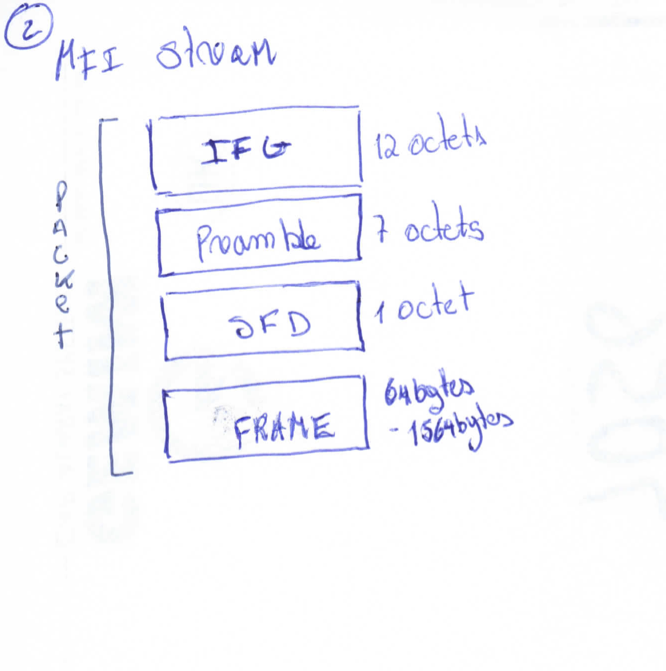 2
MII stream
Packet
IFG
12 octets
Preamble
7 octets
SFD
1 octet
FRAME
64bytes
- 1564bytes